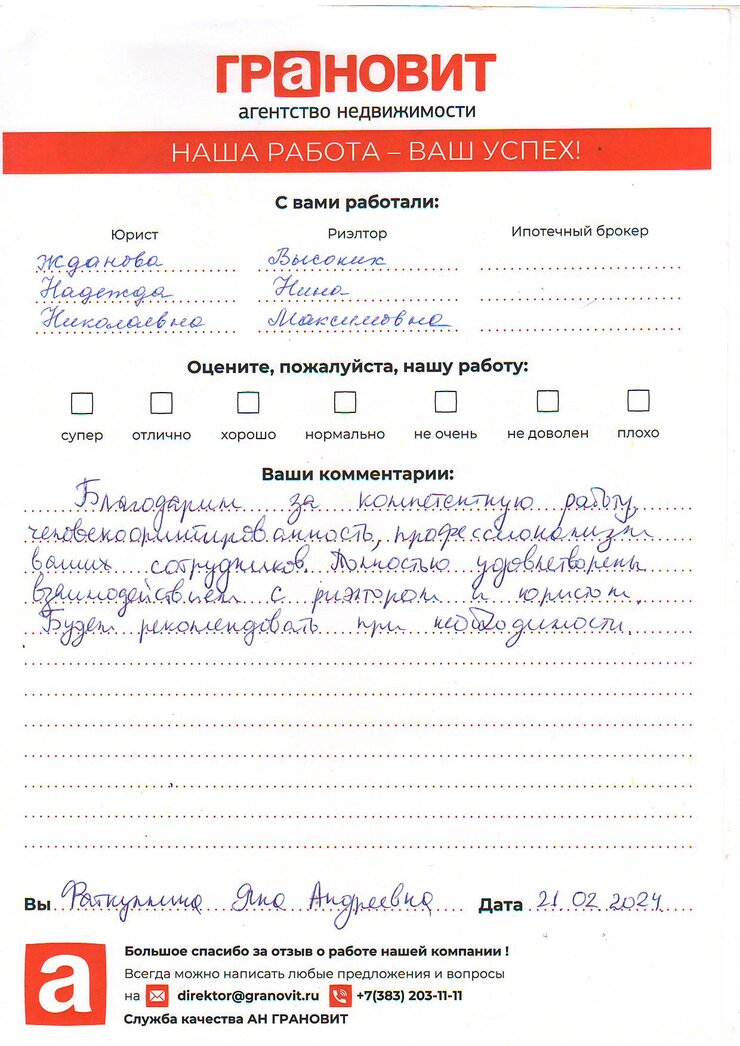 ГРаНОВИТ
агентство недвижимости
НАША РАБОТА – ВАШ УСПЕХ!
С вами работали:
Юрист Риэлтор Ипотечный брокер
Жданова Высоких
Надежда Нина
Николаевна Максимовна
Оцените, пожалуйста, нашу работу:
супер отлично хорошо нормально не очень не доволен плохо
Ваши комментарии:
Благодарим за компетентную работу,
человекоориентированность, профессионализм
ваших сотрудников. Полностью удовлетворены
взаимодействием с риэлтором и юристом.
Будем рекомендовать при необходимости.
Вы Фаткуллина Яна Андреевна Дата 21 02 2024
а
Большое спасибо за отзыв о работе нашей компании !
Всегда можно написать любые предложения и вопросы
на direktor@granovit.ru +7(383) 203-11-11
Служба качества АН ГРАНОВИТ